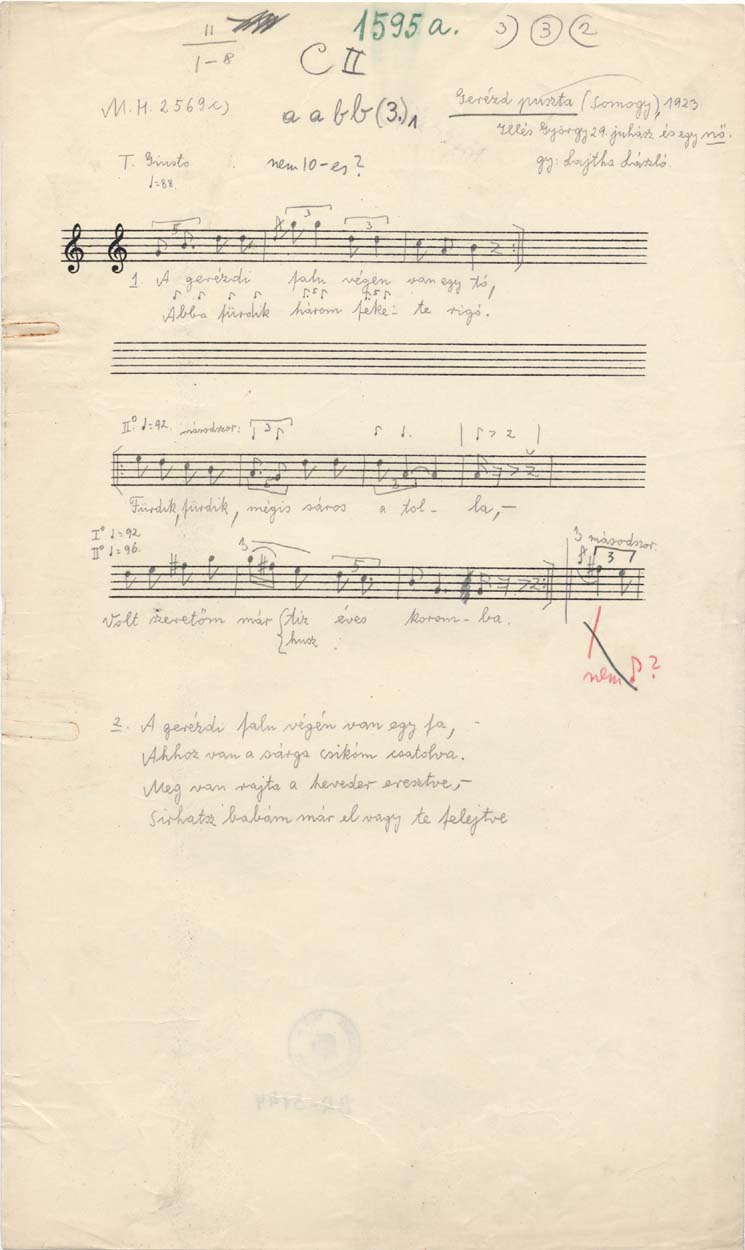 II
1-8
1595a.
3) (3) (2
C II
M.H. 2569c)
a a b b (3.)1
Gerézd puszta (Somogy), 1923.
Illés György 29. juhász és egy nő.
gy: Lajtha László.
T. Giusto
♩=88.
nem 10-es?
5 3 3
1. A gerézdi falu végén van egy tó,
Abba fürdik három feke- te rigó.
II° ♩=92. másodszor: 3
Fürdik, fürdik, mégis sáros a tol- la,-
I° ♩=92
II° ♩=96.
3 5
3 másodszor.
3
Volt szeretőm már {tiz éves korom- ba.
{husz
nem ♪?
2. A gerézdi falu végén van egy fa, -
Ahhoz van a sárga csikóm csatolva.
Meg van rajta a heveder eresztve,-
Sirhatsz babám már el vagy te felejtve